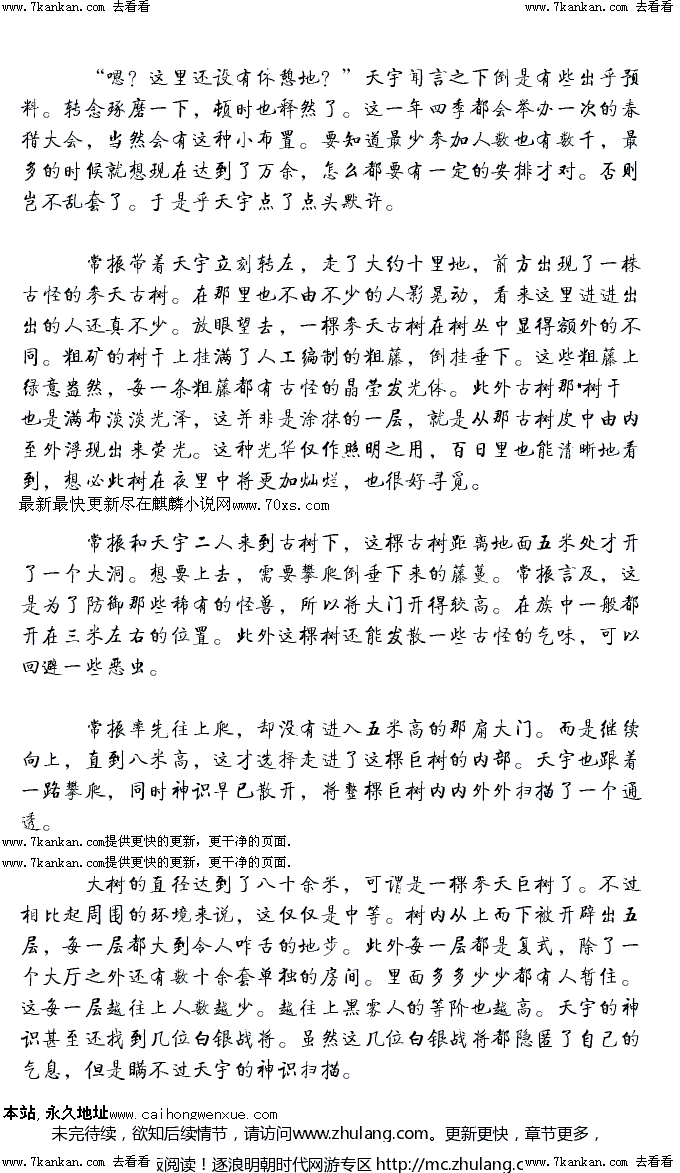 www.7kankan.com 去看看 www.7kankan.com 去看看
“嗯？这里还设有休憩地？”天宇闻言之下倒是有些出乎预
料。转念琢磨一下，顿时也释然了。这一年四季都会举办一次的春
猎大会，当然会有这种小布置。要知道最少参加人数也有数千，最
多的时候就想现在达到了万余，怎么都要有一定的安排才对。否则
岂不乱套了。于是乎天宇点了点头默许。
常振带着天宇立刻转左，走了大约十里地，前方出现了一株
古怪的参天古树。在那里也不由不少的人影晃动，看来这里进进出
出的人还真不少。放眼望去，一棵参天古树在树丛中显得额外的不
同。粗矿的树干上挂满了人工编制的粗藤，倒挂垂下。这些粗藤上
绿意盎然，每一条粗藤都有古怪的晶莹发光体。此外古树那树干
也是满布淡淡光泽，这并非是涂抹的一层，就是从那古树皮中由内
至外浮现出来荧光。这种光华仅作照明之用，百日里也能清晰地看
到，想必此树在夜里中将更加灿烂，也很好寻觅。
最新最快更新尽在麒麟小说网www.70xs.com
常振和天宇二人来到古树下，这棵古树距离地面五米处才开
了一个大洞。想要上去，需要攀爬倒垂下来的藤蔓。常振言及，这
是为了防御那些稀有的怪兽，所以将大门开得较高。在族中一般都
开在三米左右的位置。此外这棵树还能发散一些古怪的气味，可以
回避一些恶虫。
常振率先往上爬，却没有进入五米高的那扇大门。而是继续
向上，直到八米高，这才选择走进了这棵巨树的内部。天宇也跟着
一路攀爬，同时神识早已散开，将整棵巨树内内外外扫描了一个通
透。
www.7kankan.com提供更快的更新，更干净的页面.
www.7kankan.com提供更快的更新，更干净的页面.
大树的直径达到了八十余米，可谓是一棵参天巨树了。不过
相比起周围的环境来说，这仅仅是中等。树内从上而下被开辟出五
层，每一层都大到令人咋舌的地步。此外每一层都是复式，除了一
个大厅之外还有数十余套单独的房间。里面多多少少都有人暂住。
这每一层越往上人数越少。越往上黑雾人的等阶也越高。天宇的神
识甚至还找到几位白银战将。虽然这几位白银战将都隐匿了自己的
气息，但是瞒不过天宇的神识扫描。
本站,永久地址www.caihongwenxue.com
未完待续，欲知后续情节，请访问www.zhulang.com。更新更快，章节更多，
www.7kankan.com 去看看 阅读！逐浪明朝时代网游专区 http://mc.zhulang.c www.7kankan.com 去看看